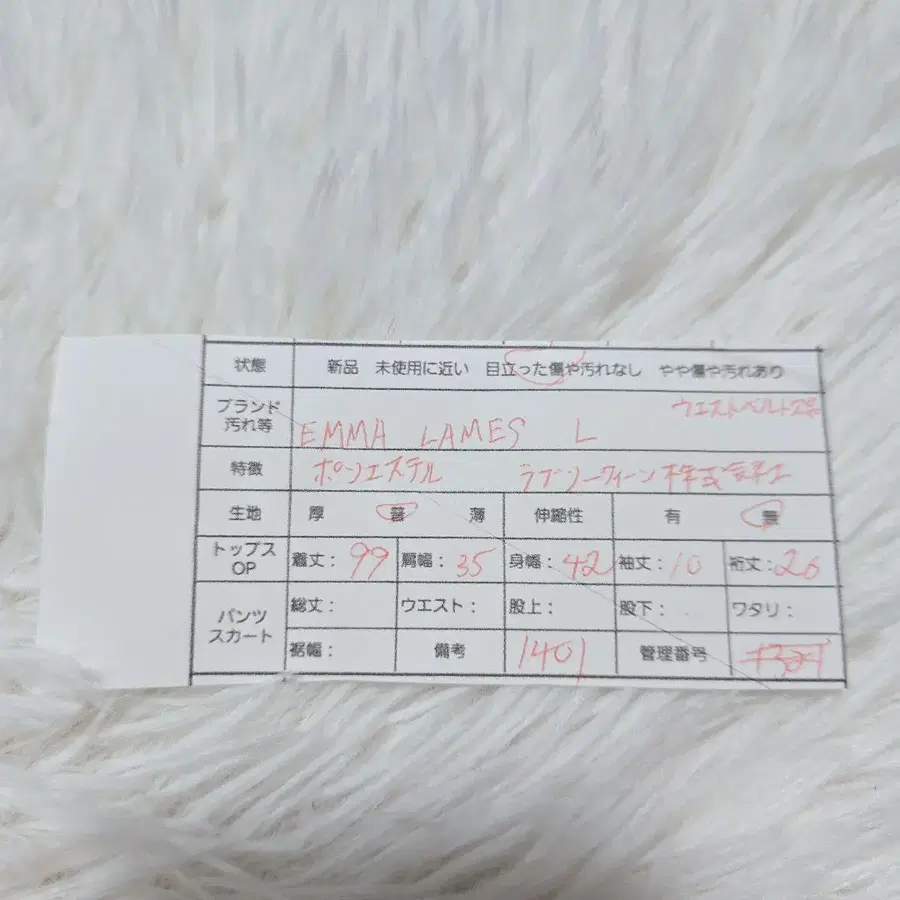 状態 新品 未使用に近い 目立った傷や汚れなし やや傷や汚れあり
ブランド 汚れ等 EMMA LAMES L ウエストベルト
特徴 ポリエステル ラブリークィーン株式会社
生地 厚 普 薄 伸縮性 有 無
トップス OP 着丈: 99 肩幅: 35 身幅: 42 袖丈: 10 裄丈: 26
パンツ スカート 総丈: ウエスト: 股上: 股下: ワタリ:
裾幅: 備考 1401 管理番号